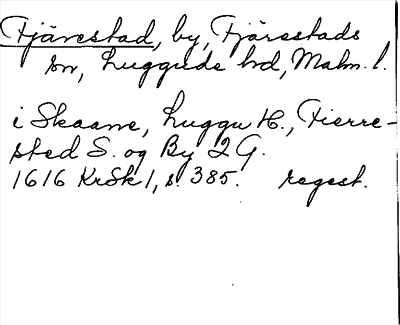 Fjärestad, by, Fjärestads
sn, Luggude hd, Malm. l.
i Skaane, Luggu H., Fierre-
sted S. og By 2 G.
1616 KrSk 1, s. 385. regest.